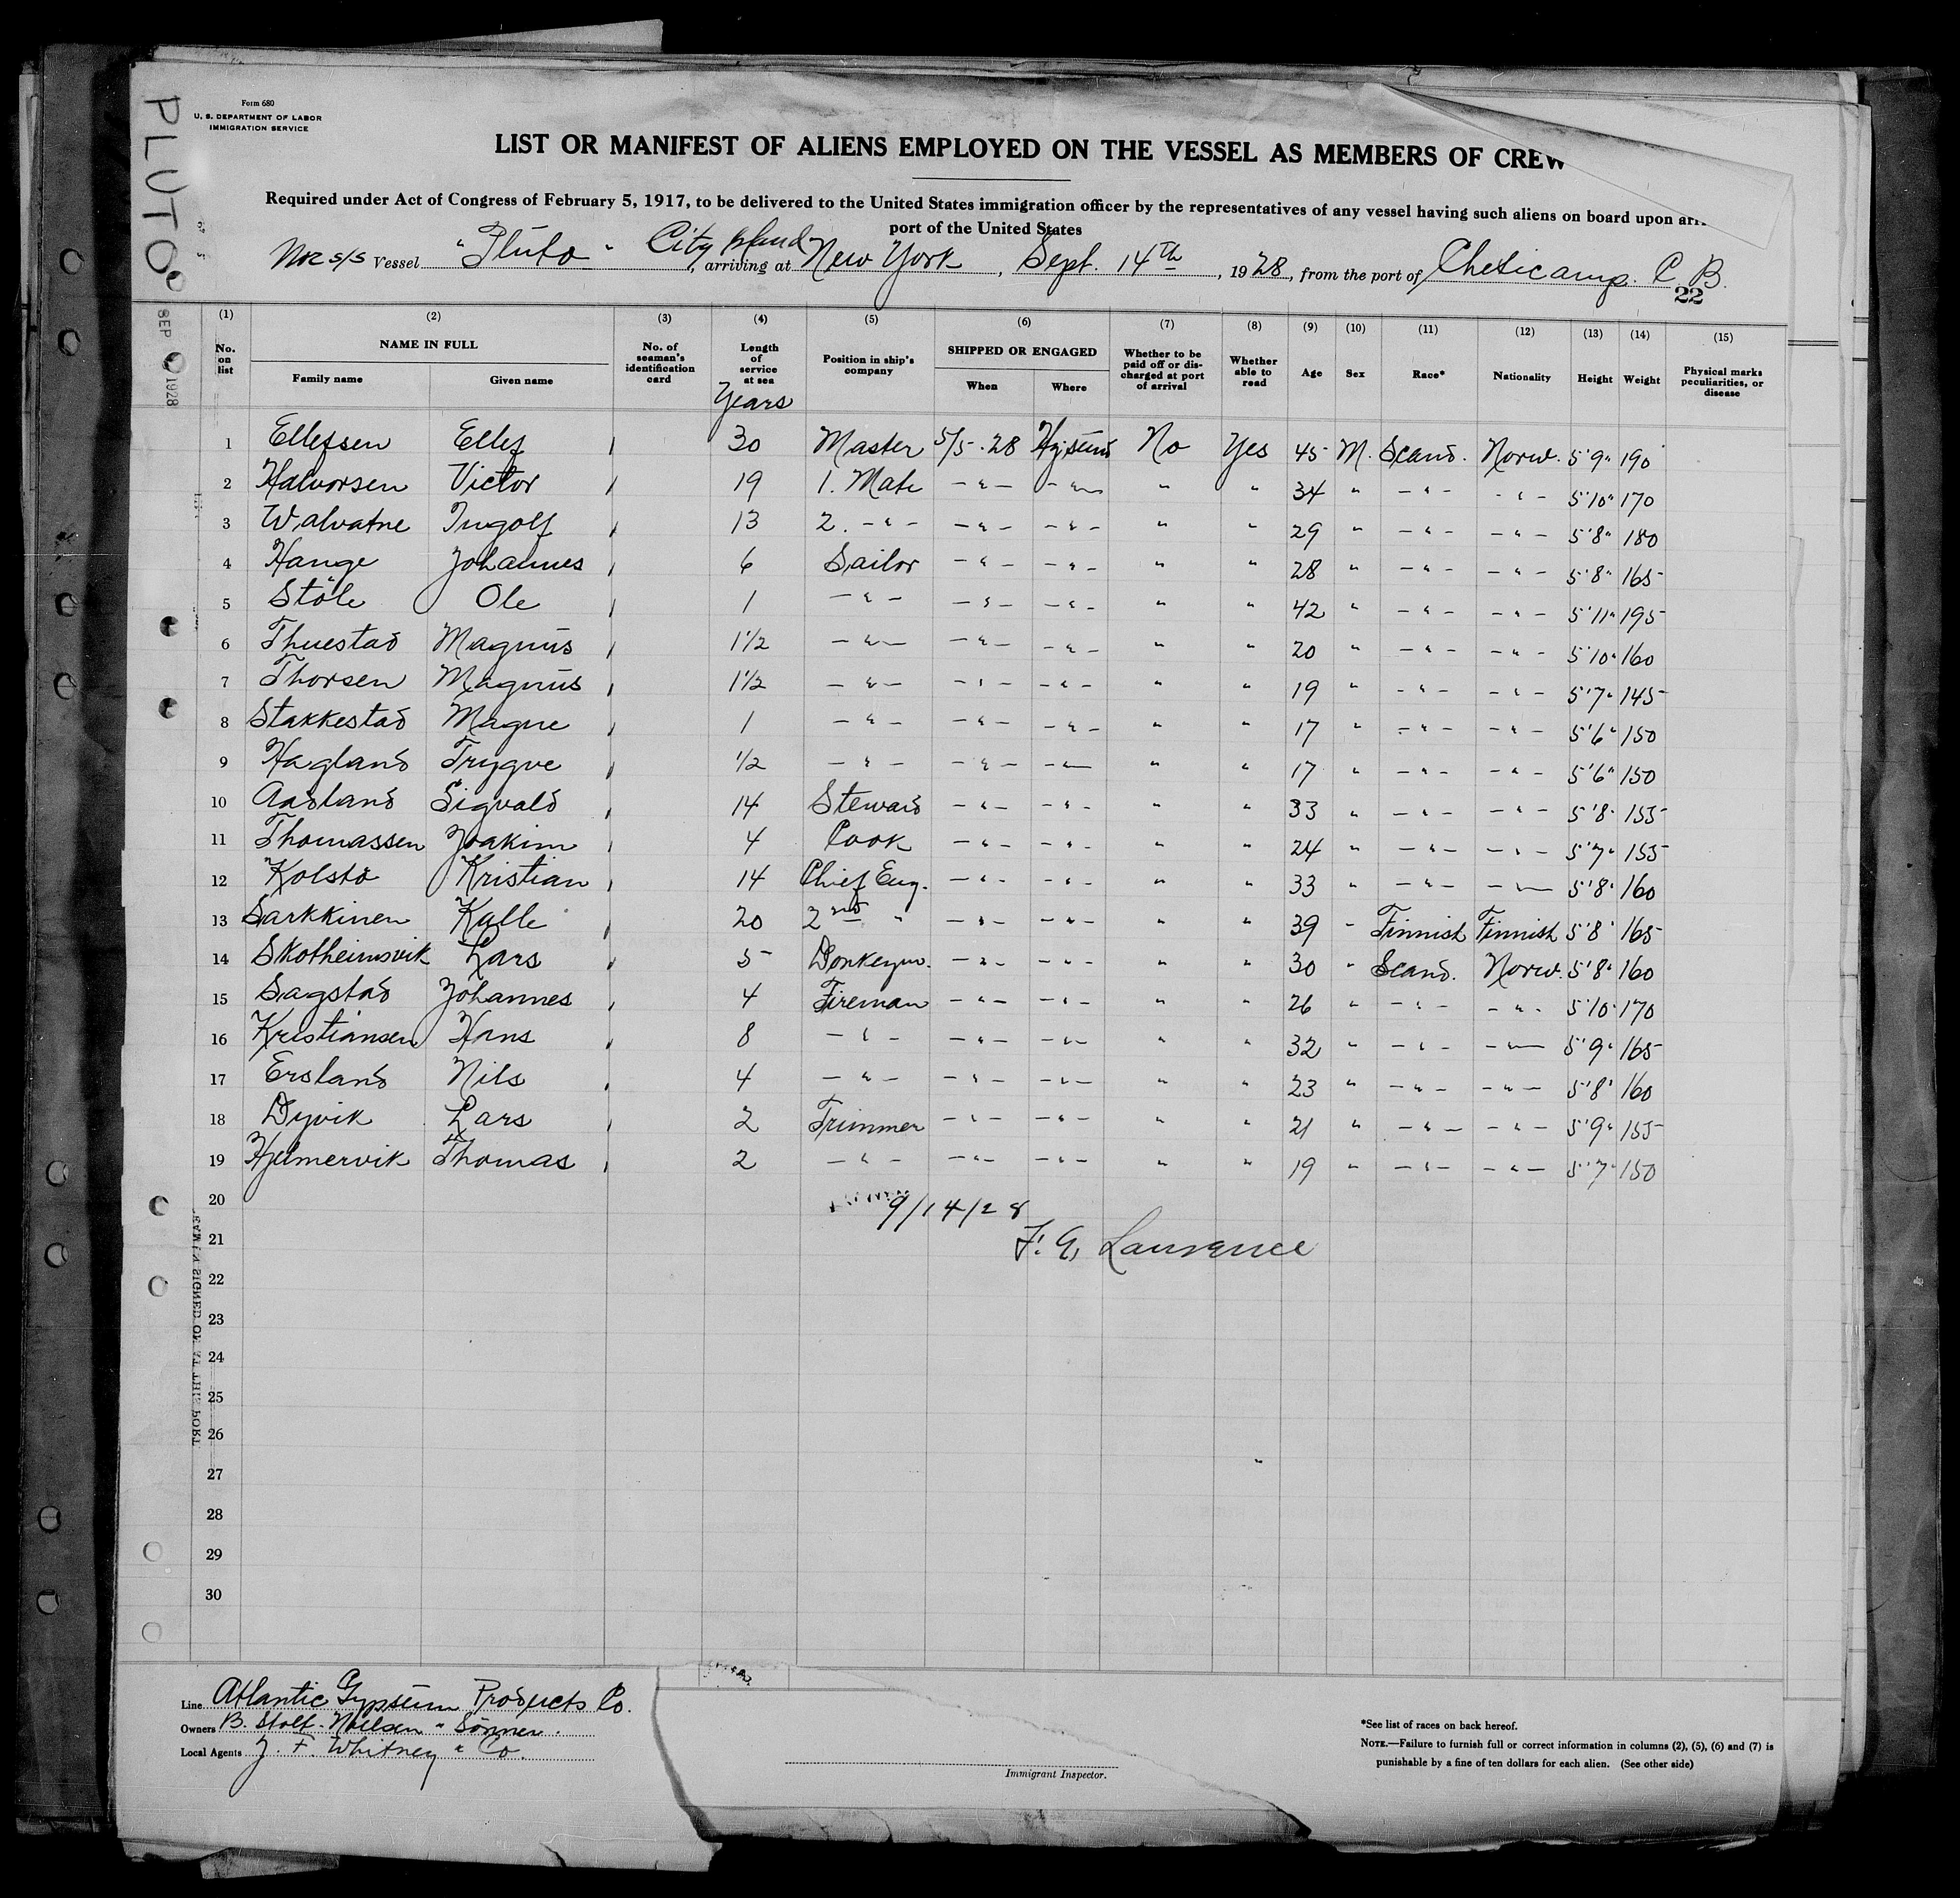 PLUTO
SEP 1928
Form 680
U. S. DEPARTMENT OF LABOR
IMMIGRATION SERVICE
LIST OR MANIFEST OF ALIENS EMPLOYED ON THE VESSEL AS MEMBERS OF CREW
Required under Act of Congress of February 5, 1917, to be delivered to the United States immigration officer by the representatives of any vessel having such aliens on board upon arri
port of the United States
S/S Vessel "Pluto" City Island, arriving at New York, Sept. 14th, 1928, from the port of Cheticamp. C. B.
22
(1) (2) (3) (4) (5) (6) (7) (8) (9) (10) (11) (12) (13) (14) (15)
No. on list NAME IN FULL Family name Given name No. of seaman's identification card Length of service at sea Years Position in ship's company SHIPPED OR ENGAGED When Where Whether to be paid off or dis-charged at port of arrival Whether able to read Age Sex Race* Nationality Height Weight Physical marks peculiarities, or disease
1 Ellefsen Ellef 30 Master 5/5-28 No Yes 45 M. Scand. Norw. 5'9" 190
2 Halvorsen Victor 19 1. Mate -"- -"- " " 34 " -"- -"- 5'10" 170
3 Walvatne Ingolf 13 2. -"- -"- -"- " " 29 " -"- -"- 5'8" 180
4 Hauge Johannes 6 Sailor -"- -"- " " 28 " -"- -"- 5'8" 165
5 Støle Ole 1 -"- -"- -"- " " 42 " -"- -"- 5'11" 195
6 Thuestad Magnus 1 1/2 -"- -"- -"- " " 20 " -"- -"- 5'10" 160
7 Thorsen Magnus 1 1/2 -"- -"- -"- " " 19 " -"- -"- 5'7" 145
8 Stakkestad Magne 1 -"- -"- -"- " " 17 " -"- -"- 5'6" 150
9 Hagland Trygve 1/2 -"- -"- -"- " " 17 " -"- -"- 5'6" 150
10 Aadland Sigvald 14 Steward -"- -"- " " 33 " -"- -"- 5'8" 155
11 Thomassen Joakim 4 Cook -"- -"- " " 24 " -"- -"- 5'7" 155
12 Kolstø Kristian 14 Chief Eng. -"- -"- " " 33 " -"- -"- 5'8" 160
13 Sarkkinen Kalle 20 2nd " -"- -"- " " 39 " Finnish Finnish 5'8" 165
14 Skotheimsvik Lars 5 Donkeym. -"- -"- " " 30 " Scand. Norw. 5'8" 160
15 Sagstad Johannes 4 Fireman -"- -"- " " 26 " -"- -"- 5'10" 170
16 Kristiansen Hans 8 -"- -"- -"- " " 32 " -"- -"- 5'9" 165
17 Ersland Nils 4 -"- -"- -"- " " 23 " -"- -"- 5'8" 160
18 Dyvik Lars 2 Trimmer -"- -"- " " 21 " -"- -"- 5'9" 155
19 Hjelmervik Thomas 2 -"- -"- -"- " " 19 " -"- -"- 5'7" 150
20 9/14/28
21 F. E. Laurence
22
23
24
25
26
27
28
29
30
Line Atlantic Gypsum Products Co.
Owners B. Stolt-Nielsen " Sønner.
Local Agents J. F. Whitney " Co.
Immigrant Inspector.
*See list of races on back hereof.
NOTE.—Failure to furnish full or correct information in columns (2), (5), (6) and (7) is
punishable by a fine of ten dollars for each alien. (See other side)